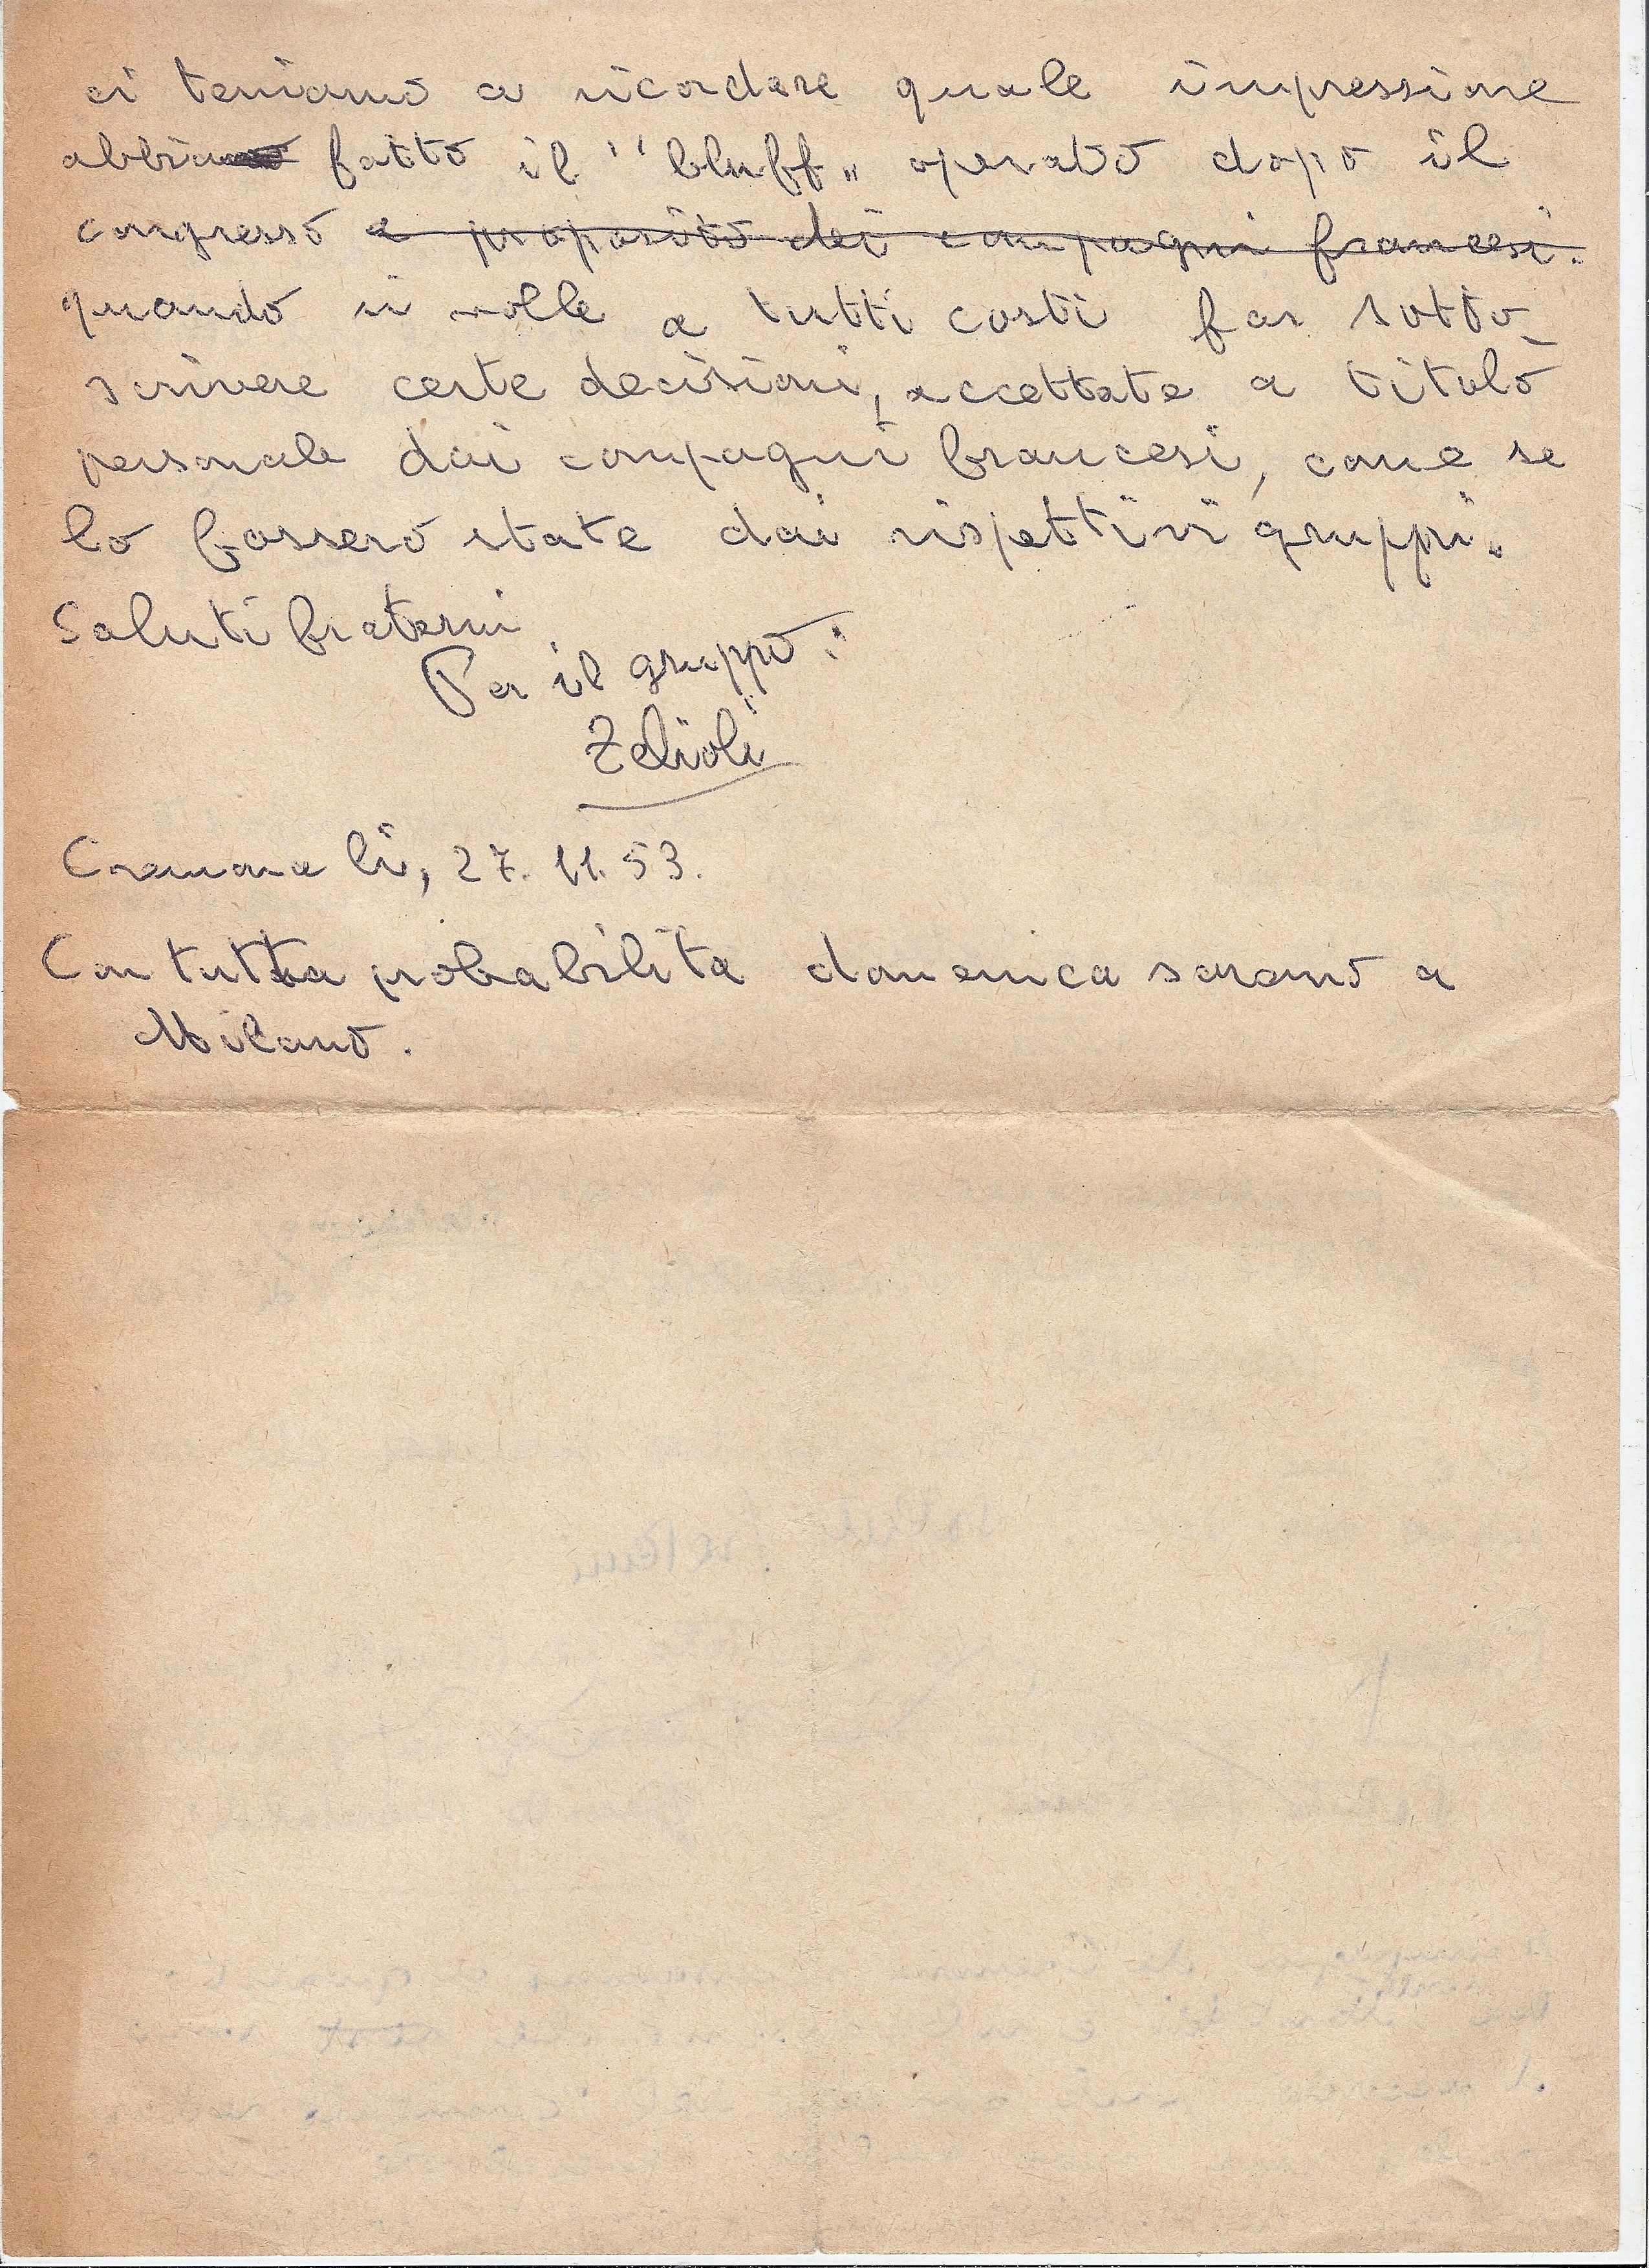 ci teniamo a ricordare quale impressione
abbia fatto il "bluff" operato dopo il
congresso a proposito dei compagni francesi.
quando si volle a tutti costi far sotto-
scrivere certe decisioni, accettate a titolo
personale dai compagni francesi, come se
lo fossero state dai rispettivi gruppi.
Saluti fraterni
Per il gruppo:
Zelioli
Cremona li, 27.11.53.
Con tutta probabilita domenica saremo a
Milano.
saluti fraterni